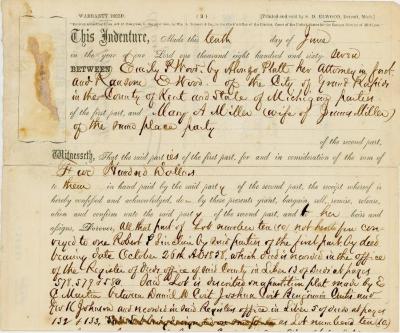 WARRANTY DEED. (2) [Printed and sold by S. D. ELWOOD, Detroit, Mich.]
This Indenture, Made this tenth day of June
in the year of our Lord one thousand eight hundred and sixty seven
BETWEEN Emily P Wood, by Alonzo Platt her Attorney in fact
and Ransom E. Wood of the City of Grand Rapids
in the County of Kent and State of Michigan parties
of the first part, and Mary A Miller (wife of James Miller)
of the same place party
of the second part,
Witnesseth, That the said parties of the first part, for and in consideration of the sum of
Five Hundred Dollars
to them in hand paid by the said party of the second part, the receipt whereof is
hereby confessed and acknowledged, do by these presents, grant, bargain, sell, remise, release,
alien and confirm unto the said party of the second part, and to her heirs and
assigns, Forever, All that part of Lot number ten (10) not heretofore con-
veyed to one Robert Sinclair by said parties of the first part by deed
bearing date October 26th AD 1858, which deed is recorded in the office
of the Register of Deeds office of said County in Liber 13 of deeds at pages
578, 579 & 580 Said Lot is described on a partition plat made by E
C Martin between Daniel Joshua Benjamin and
for H Johnson and recorded in said Registers office in Liber 5 of deeds at pages
132 & 133, as Lot number ten (10)